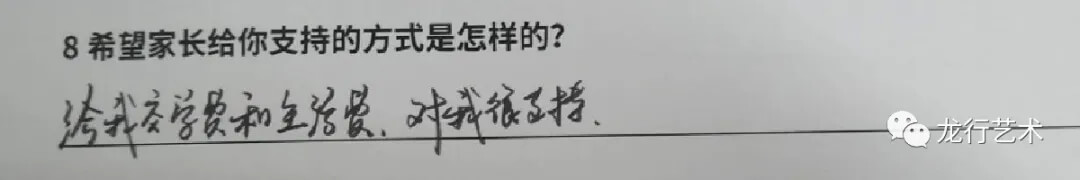 8 希望家长给你支持的方式是怎样的?
给我交学费和生活费、对我很支持、
龙行艺术